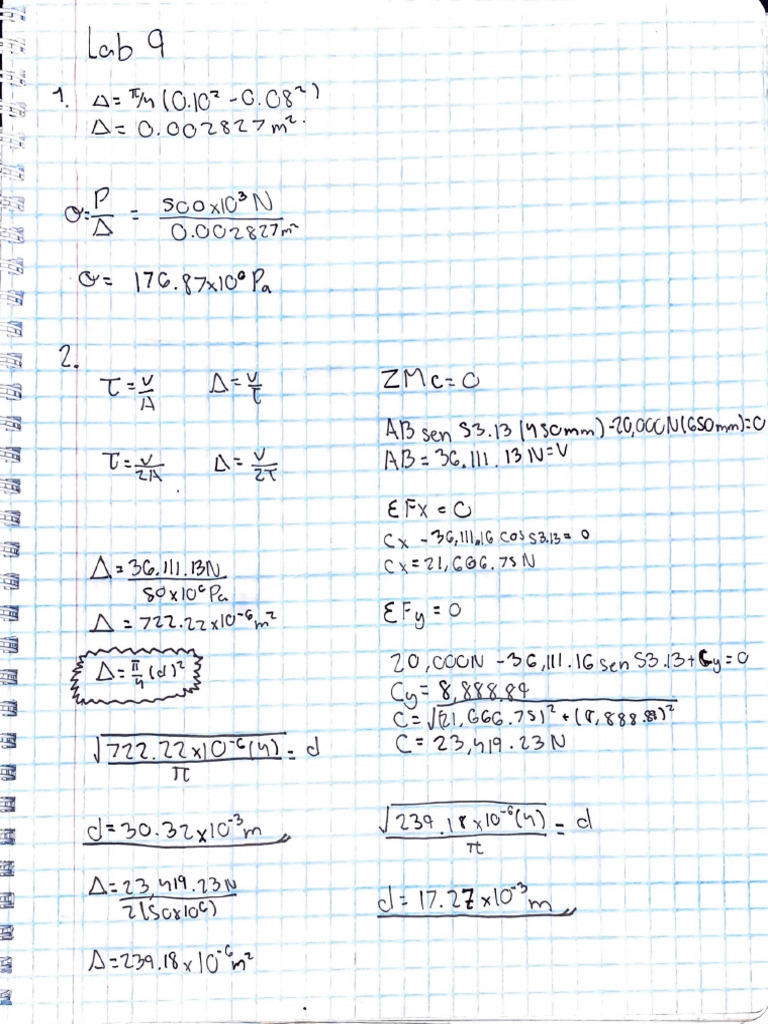 Lab 9
1. Δ = π/4 (0.10² - 0.08²)
Δ = 0.002827 m².
σ = P/Δ = 500x10³ N / 0.002827 m²
σ = 176.87x10⁶ Pa
2.
τ = V/A    Δ = V/τ
τ = V/2A    Δ = V/2τ
Δ = 36,111.13N / 50x10⁶ Pa
Δ = 722.22x10⁻⁶ m²
Δ = π/4 (d)²
√722.22x10⁻⁶(4)/π = d
d = 30.32x10⁻³ m
Δ = 23,419.23N / 2(50x10⁶)
Δ = 239.18x10⁻⁶ m²
ΣMc = 0
AB sen 53.13 (450mm) - 20,000N (650mm) = 0
AB = 36,111.13 N = V
ΣFx = 0
Cx - 36,111.16 cos 53.13 = 0
Cx = 21,666.75 N
ΣFy = 0
20,000N - 36,111.16 sen 53.13 + Cy = 0
Cy = 8,888.89
C = √(21,666.75)² + (8,888.89)²
C = 23,419.23 N
√239.18x10⁻⁶(4)/π = d
d = 17.27x10⁻³ m